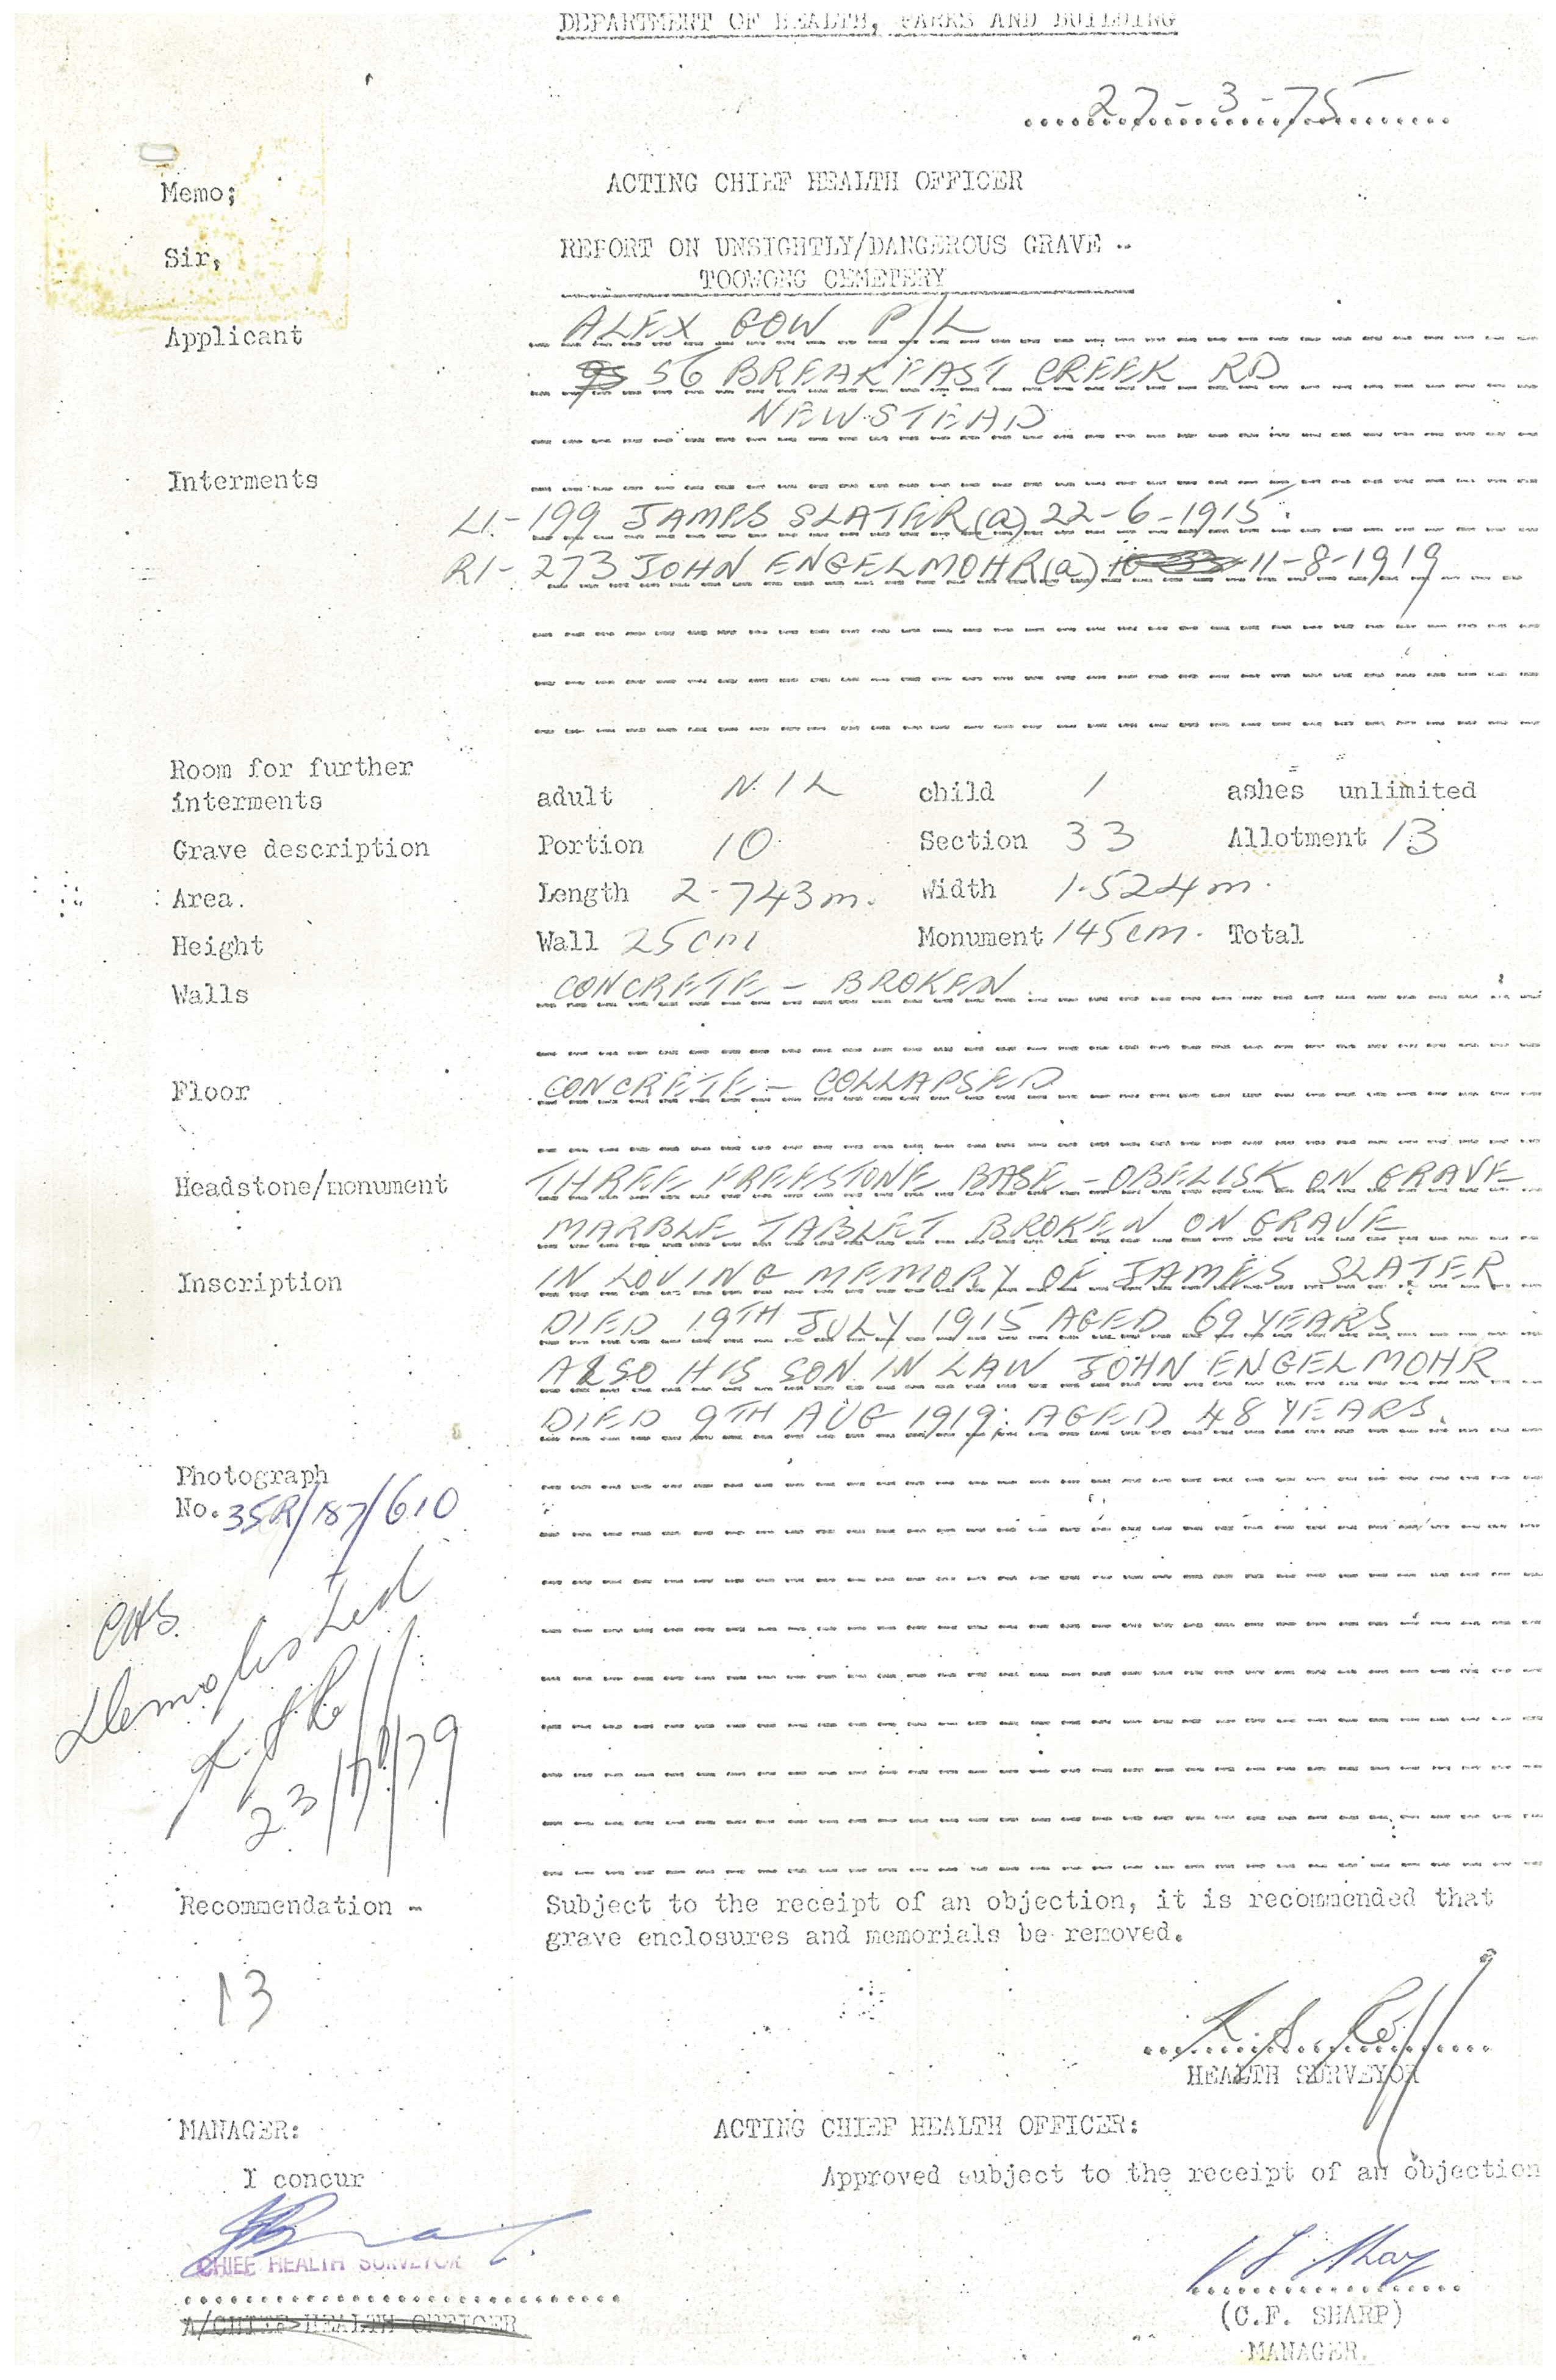 DEPARTMENT OF HEALTH, PARKS AND BUILDING
27-3-75
Memo; ACTING CHIEF HEALTH OFFICER
Sir, REPORT ON UNSIGHTLY/DANGEROUS GRAVE --
TOOWONG CEMETERY
Applicant ALEX GOW P/L
56 BREAKFAST CREEK RD
NEWSTEAD
Interments
L1-199 JAMES SLATER (a) 22-6-1915.
R1-273 JOHN ENGELMOHR (a) 11-8-1919
Room for further
interments adult NIL child 1 ashes unlimited
Grave description Portion 10 Section 33 Allotment 13
Area. Length 2.743m. Width 1.524m.
Height Wall 25cm Monument 145cm. Total
Walls CONCRETE - BROKEN
Floor CONCRETE - COLLAPSED
Headstone/monument THREE FREESTONE BASE - OBELISK ON GRAVE
MARBLE TABLET BROKEN ON GRAVE
Inscription IN LOVING MEMORY OF JAMES SLATER
DIED 19TH JULY 1915 AGED 69 YEARS
ALSO HIS SON IN LAW JOHN ENGELMOHR
DIED 9TH AUG 1919: AGED 48 YEARS.
Photograph
No. 35R/187/610
CHS
Demolished
Recommendation - Subject to the receipt of an objection, it is recommended that
grave enclosures and memorials be removed.
13
HEALTH SURVEYOR
MANAGER: ACTING CHIEF HEALTH OFFICER:
I concur Approved subject to the receipt of an objection
CHIEF HEALTH SURVEYOR
A/CHIEF HEALTH OFFICER
(C.F. SHARP)
MANAGER.